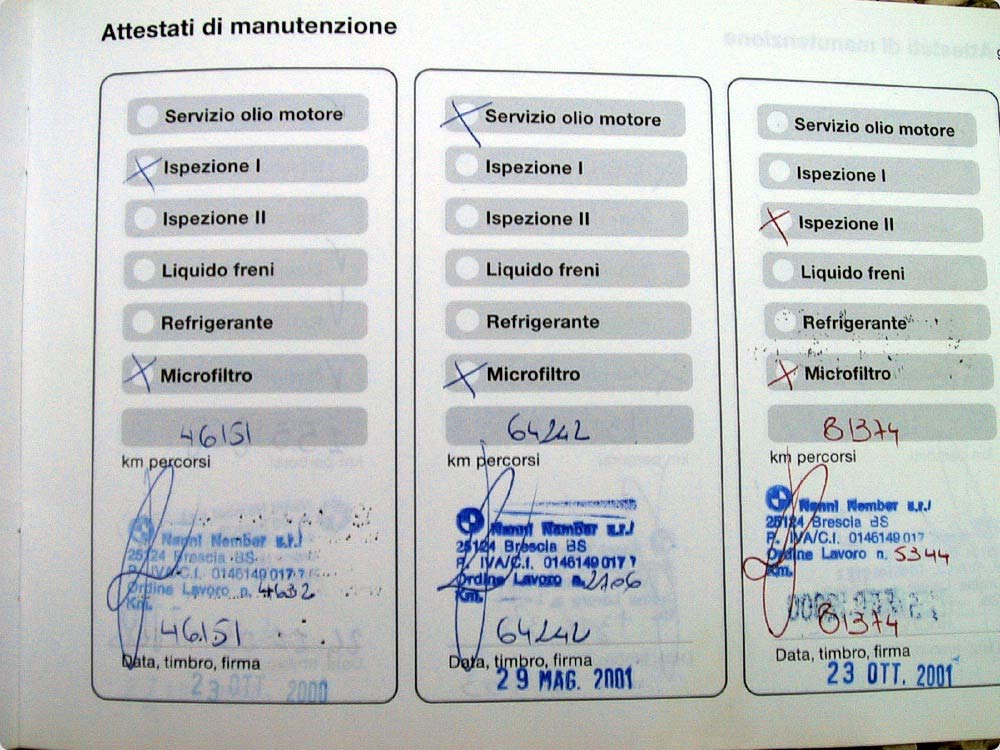 Attestati di manutenzione
Servizio olio motore
Ispezione I
Ispezione II
Liquido freni
Refrigerante
Microfiltro
46151
km percorsi
Nanni Nember s.r.l
25124 Brescia BS
P. IVA/C.I. 0146149 017 7
Ordine Lavoro n. 4632
Km.
46.151
Data, timbro, firma
23 OTT. 2000
Servizio olio motore
Ispezione I
Ispezione II
Liquido freni
Refrigerante
Microfiltro
64242
km percorsi
Nanni Nember s.r.l
25124 Brescia BS
P. IVA/C.I. 0146149 017 7
Ordine Lavoro n. 2106
Km.
64242
Data, timbro, firma
29 MAG. 2001
Servizio olio motore
Ispezione I
Ispezione II
Liquido freni
Refrigerante
Microfiltro
81374
km percorsi
Nanni Nember s.r.l
25124 Brescia BS
P. IVA/C.I. 0146149 017 7
Ordine Lavoro n. 5344
Km.
81374
Data, timbro, firma
23 OTT. 2001